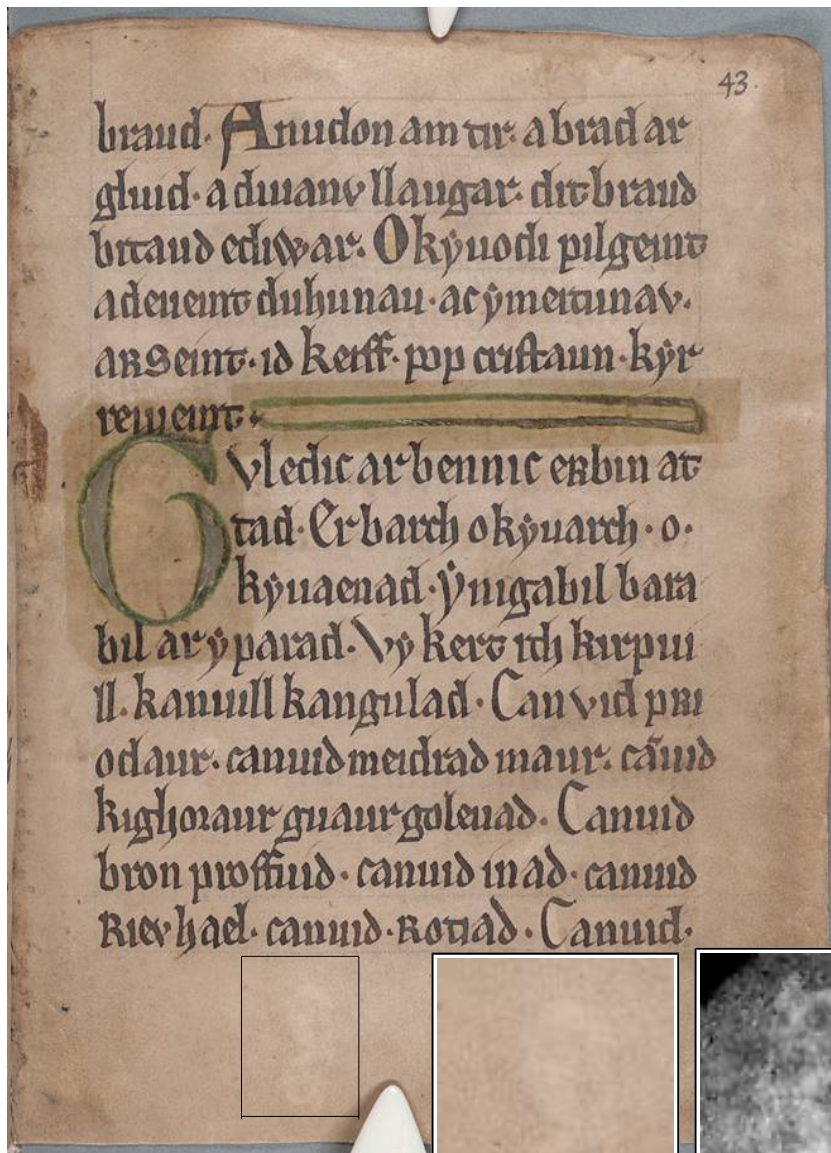 43.
braud. Anudon am tir. a brad ar
gluid. a diuanv llaugar. dit braud
braud ediwar. O kyuodi pilgeint
a deueint duhunau. ac ymeitunav.
arSeint. id keiff. pop cristaun. kyr
reiueint.
Gvledic arbennic erbin at
tad. Er barch o kyuarch. o.
kyuaenad. Ynigabil bara
bil ar y parad. Vy kert ith kirpui
ll. kanuill kangulad. Can vid pri
odaur. canuid meidrad maur. cāuid
kighoraur guaur goleuad. Canuid
bron proffuid. canuid inad. canuid
Riev hael. canuid. Rotiad. Canuid.